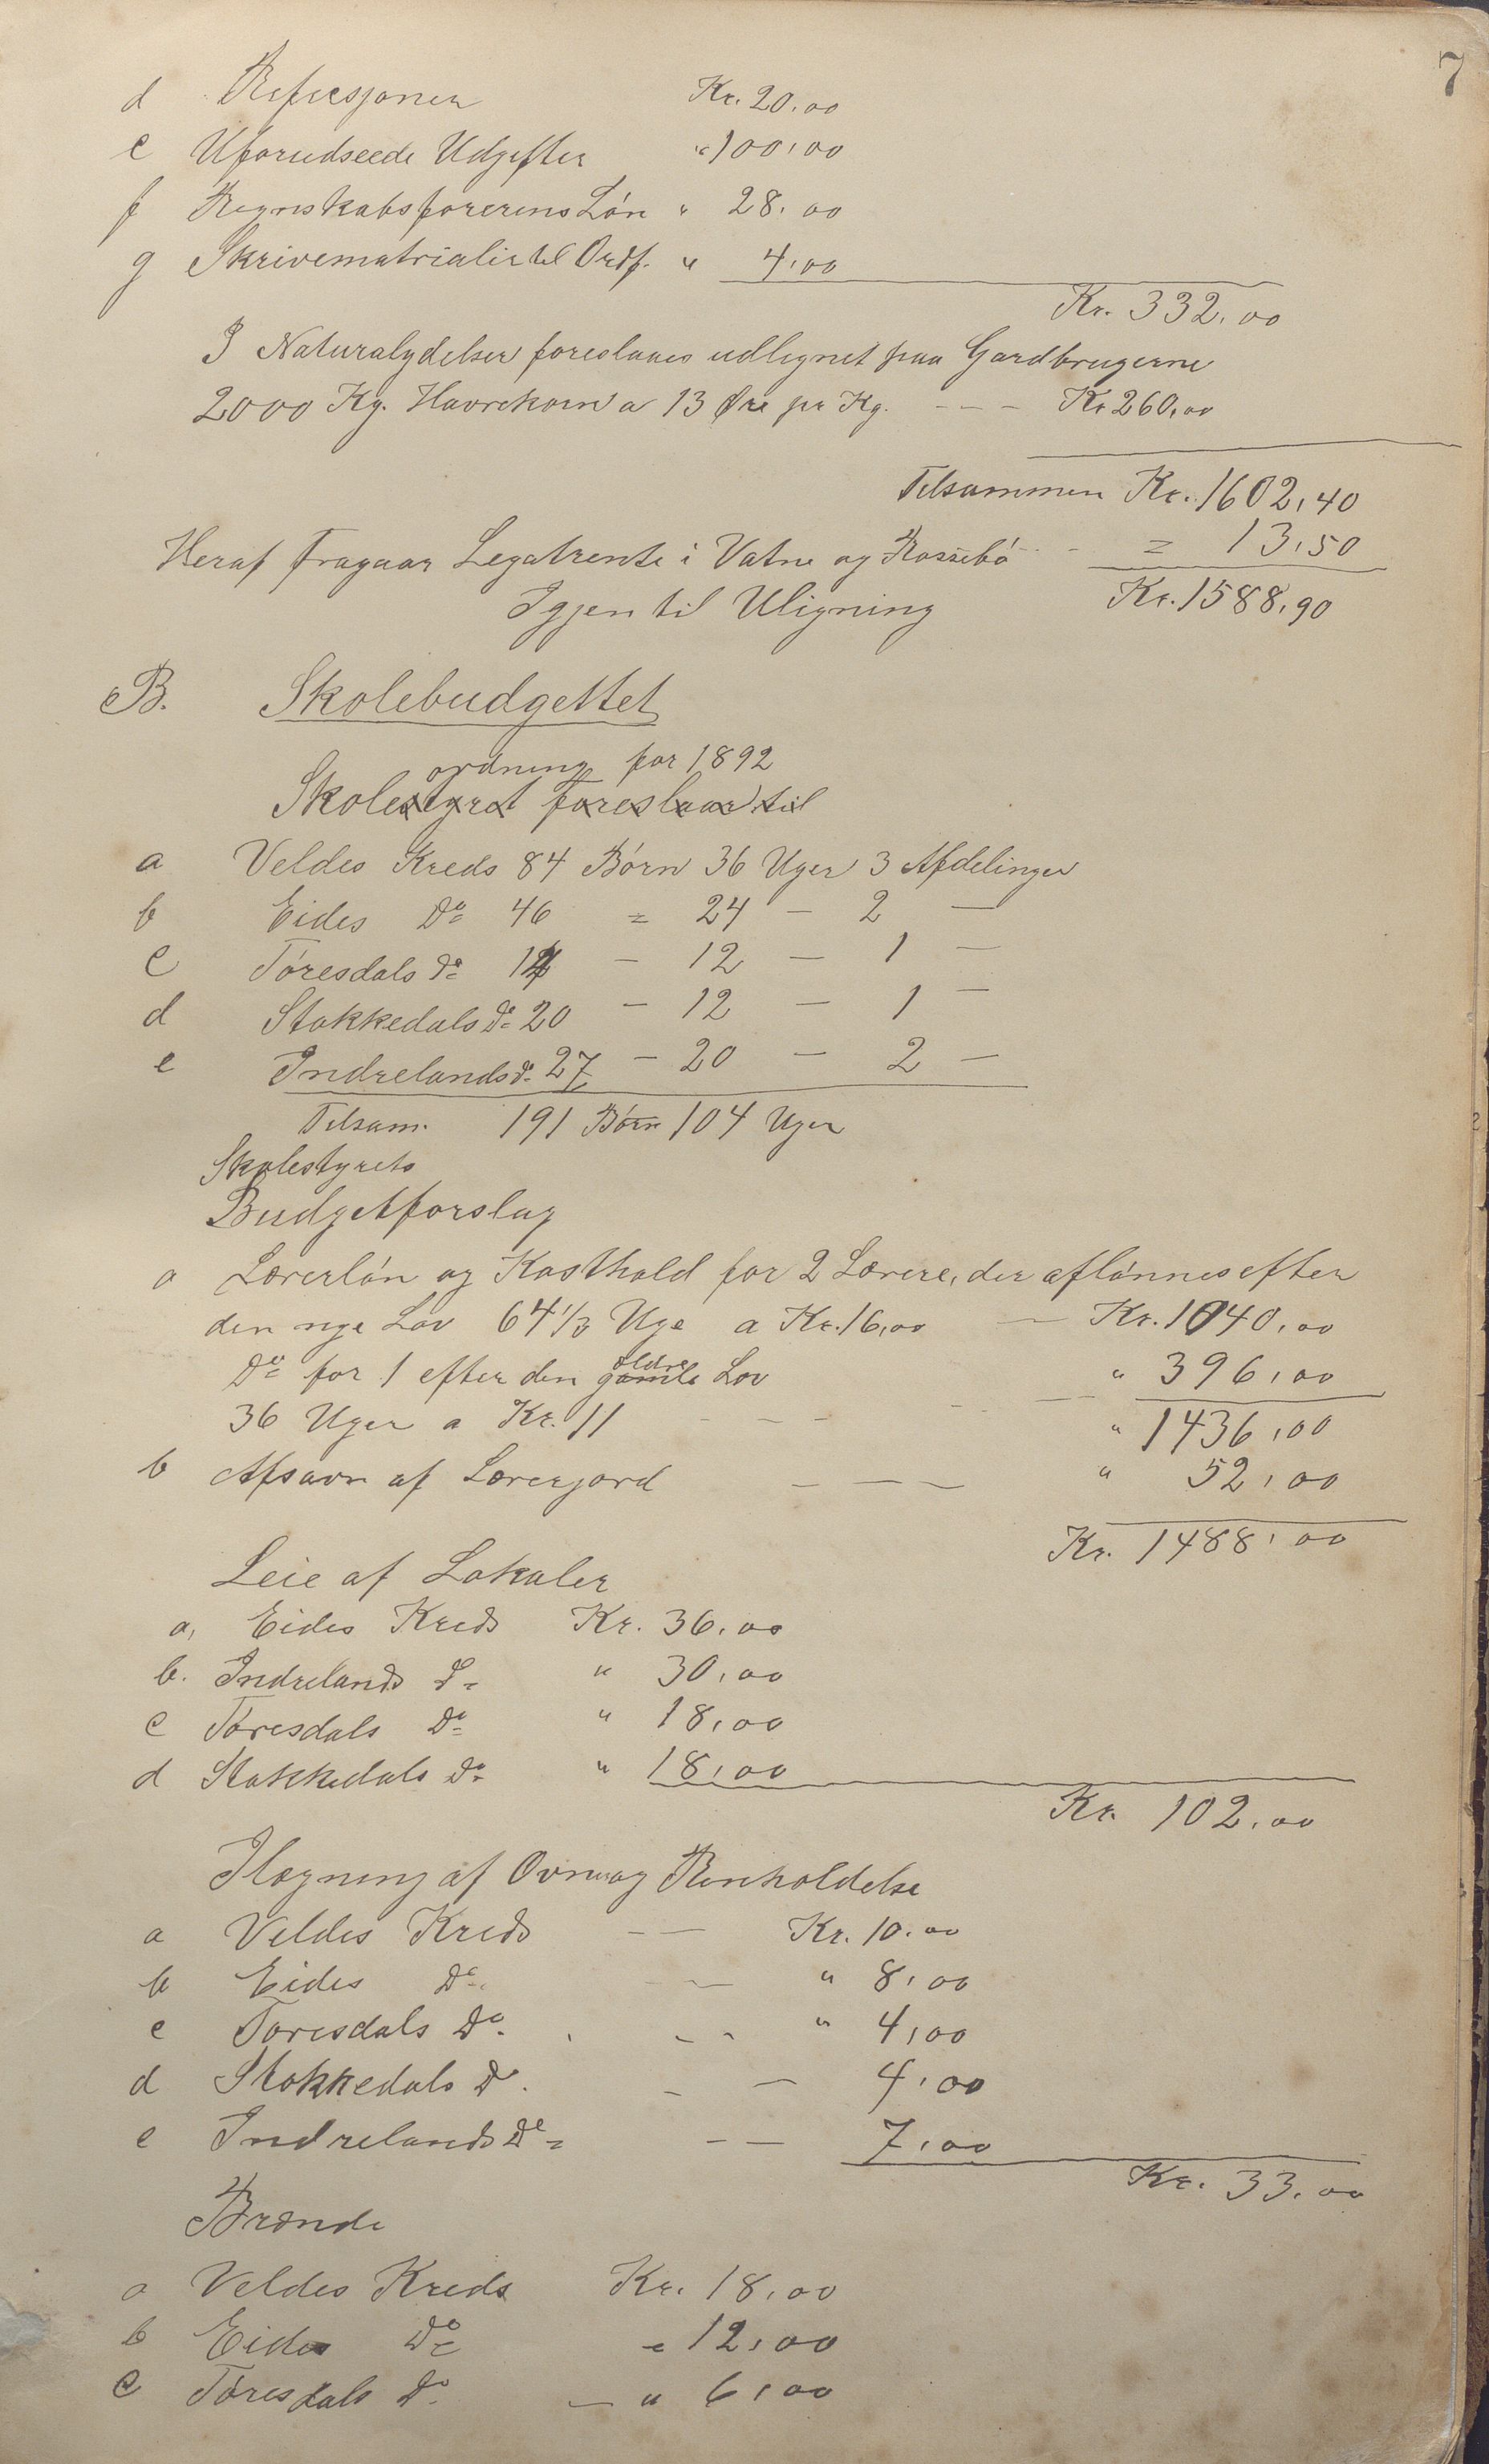 7
d Refusjoner Kr. 20,00
e Uforudseede Udgifter " 100,00
f Regnskabsförerens Lön " 28,00
g Skrivematrialier til Ordf. " 4,00
Kr. 332,00
I Naturalydelser foreslaaes udlignet paa Gardbrugerne
2000 Kg. Havrekorn a 13 Øre pr Kg. - - - Kr 260,00
Tilsammen Kr. 1602,40
Heraf fragaar Legatrente i Vatne og Rossebö - - = 13,50
Igjen til Uligning Kr. 1588,90
B. Skolebudgettet
ordning for 1892
Skolestyret foreslaar til
a Veldes Kreds 84 Børn 36 Uger 3 Afdelinger
b Eides Do 46 = 24 — 2 —
c Töresdals do 14 — 12 — 1 —
d Stokkedals do 20 — 12 — 1 —
e Indrelands do 27 — 20 — 2 —
Tilsam. 191 Børn 104 Uger
Skolestyrets
Budgetforslag
a Lærerlön og Kosthold for 2 Lærere, der aflönnes efter
den nye Lov 64 1/3 Uge a Kr. 16,00 — Kr. 1040,00
Do for 1 efter den gamle ældre Lov " 396,00
36 Uger a Kr. 11 - - - " 1436,00
b Afsavn af Lærerjord — — — " 52,00
Kr. 1488,00
Leie af Lokaler
a, Eides Kreds Kr. 36,00
b. Indrelands D= " 30,00
c Töresdals Do " 18,00
d Stokkedals Do " 18,00
Kr. 102,00
Ilægning af Ovne og Renholdelse
a Veldes Kreds — — Kr. 10,00
b Eides Do — — " 8,00
c Toresdals Do - - " 4,00
d Stokkedals D - — 4,00
e Indrelands Do — — 7,00
Kr. 33,00
Brænde
a Veldes Kreds Kr. 18,00
b Eides Do " 12,00
c Töresdals Do — " 6,00